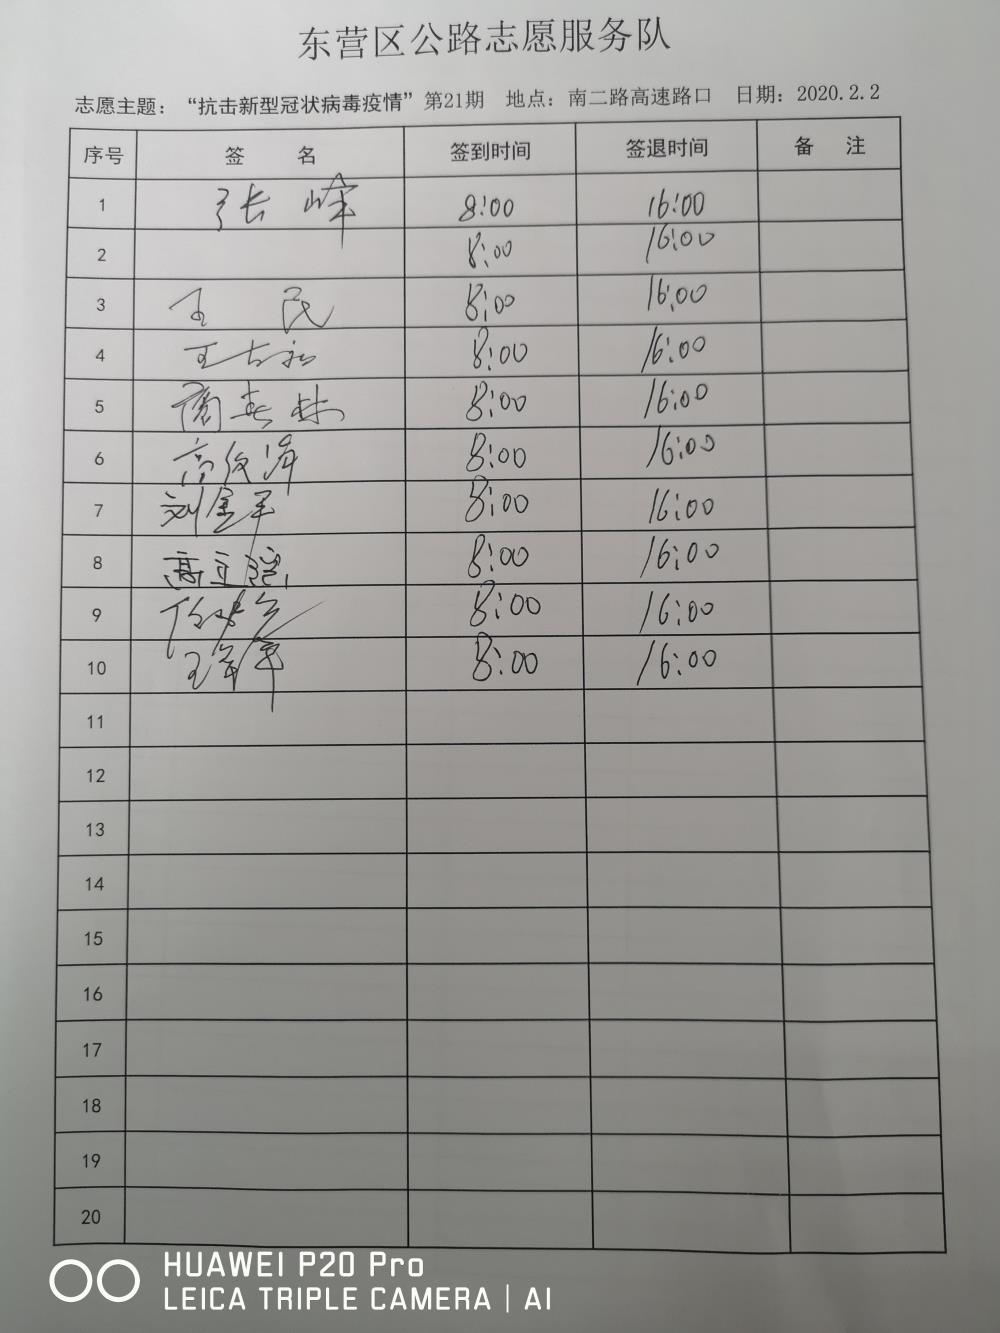 东营区公路志愿服务队
志愿主题：“抗击新型冠状病毒疫情”第21期 地点：南二路高速路口 日期：2020.2.2
序号 签 名 签到时间 签退时间 备 注
1 张峰 8:00 16:00
2 8:00 16:00
3 王民 8:00 16:00
4 王 8:00 16:00
5 商春林 8:00 16:00
6 高俊海 8:00 16:00
7 刘金平 8:00 16:00
8 高立 8:00 16:00
9 8:00 16:00
10 王军 8:00 16:00
11
12
13
14
15
16
17
18
19
20
HUAWEI P20 Pro
LEICA TRIPLE CAMERA | AI